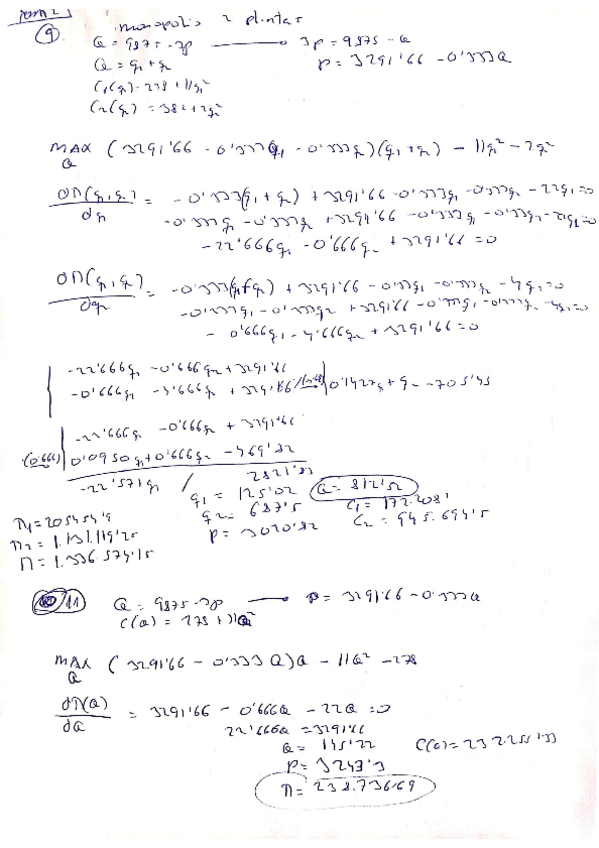 9. monopolio 2 plantas
Q = 9875 - 3p → 3p = 9875 - Q
Q = q1 + q2 p = 3291'66 - 0'333Q
C1(q1) = 278 + 11q1²
C2(q2) = 382 + 2q2²
MAX (3291'66 - 0'333q1 - 0'333q2)(q1 + q2) - 11q1² - 2q2²
Q
∂Π(q1,q2) = -0'333(q1 + q2) + 3291'66 - 0'333q1 - 0'333q2 - 22q1 = 0
-0'333q1 - 0'333q2 + 3291'66 - 0'333q1 - 0'333q2 - 22q1 = 0
-22'666q1 - 0'666q2 + 3291'66 = 0
∂Π(q1,q2) = -0'333(q1+q2) + 3291'66 - 0'333q1 - 0'333q2 - 4q2 = 0
-0'333q1 - 0'333q2 + 3291'66 - 0'333q1 - 0'333q2 - 4q2 = 0
- 0'666q1 - 4'666q2 + 3291'66 = 0
-22'666q1 - 0'666q2 + 3291'66
-0'666q1 - 4'666q2 + 3291'66 0'1427q1 + q2 - 705'45
-22'666q1 - 0'666q2 + 3291'66
·(0'666) 0'0950q1 + 0'666q2 - 469'82
-22'571q1 / 2821'83
q1 = 125'02 Q = 812'52
q2 = 687'5 C1 = 172.208'
p = 3020'82 C2 = 945.694'5
Π1 = 205454'9
Π2 = 1.131.119'25
Π = 1.336.574'15
11 Q = 9875 - 3p → p = 3291'66 - 0'333Q
C(Q) = 278 + 11Q²
MAX (3291'66 - 0'333Q)Q - 11Q² - 278
Q
∂Π(Q) = 3291'66 - 0'666Q - 22Q = 0
∂Q
22'666Q = 3291'66
Q = 145'22 C(Q) = 232.255'33
p = 3243'3
Π = 238.736'69